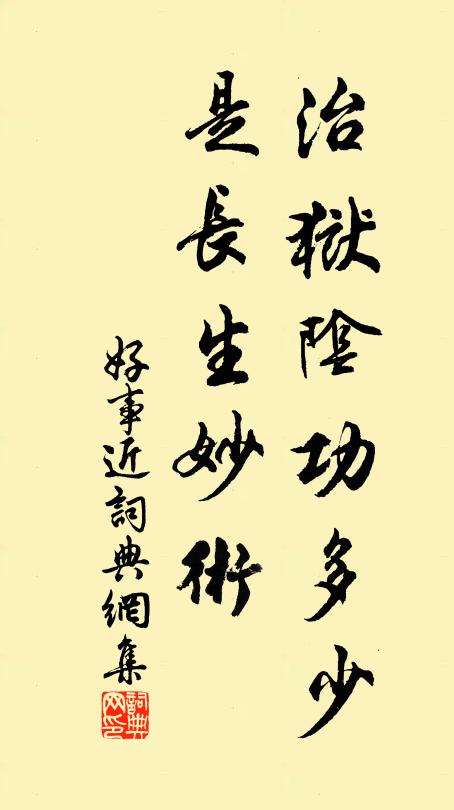 治獄陰功多少
是長生妙術
好事近詞典網集
詞典
网印